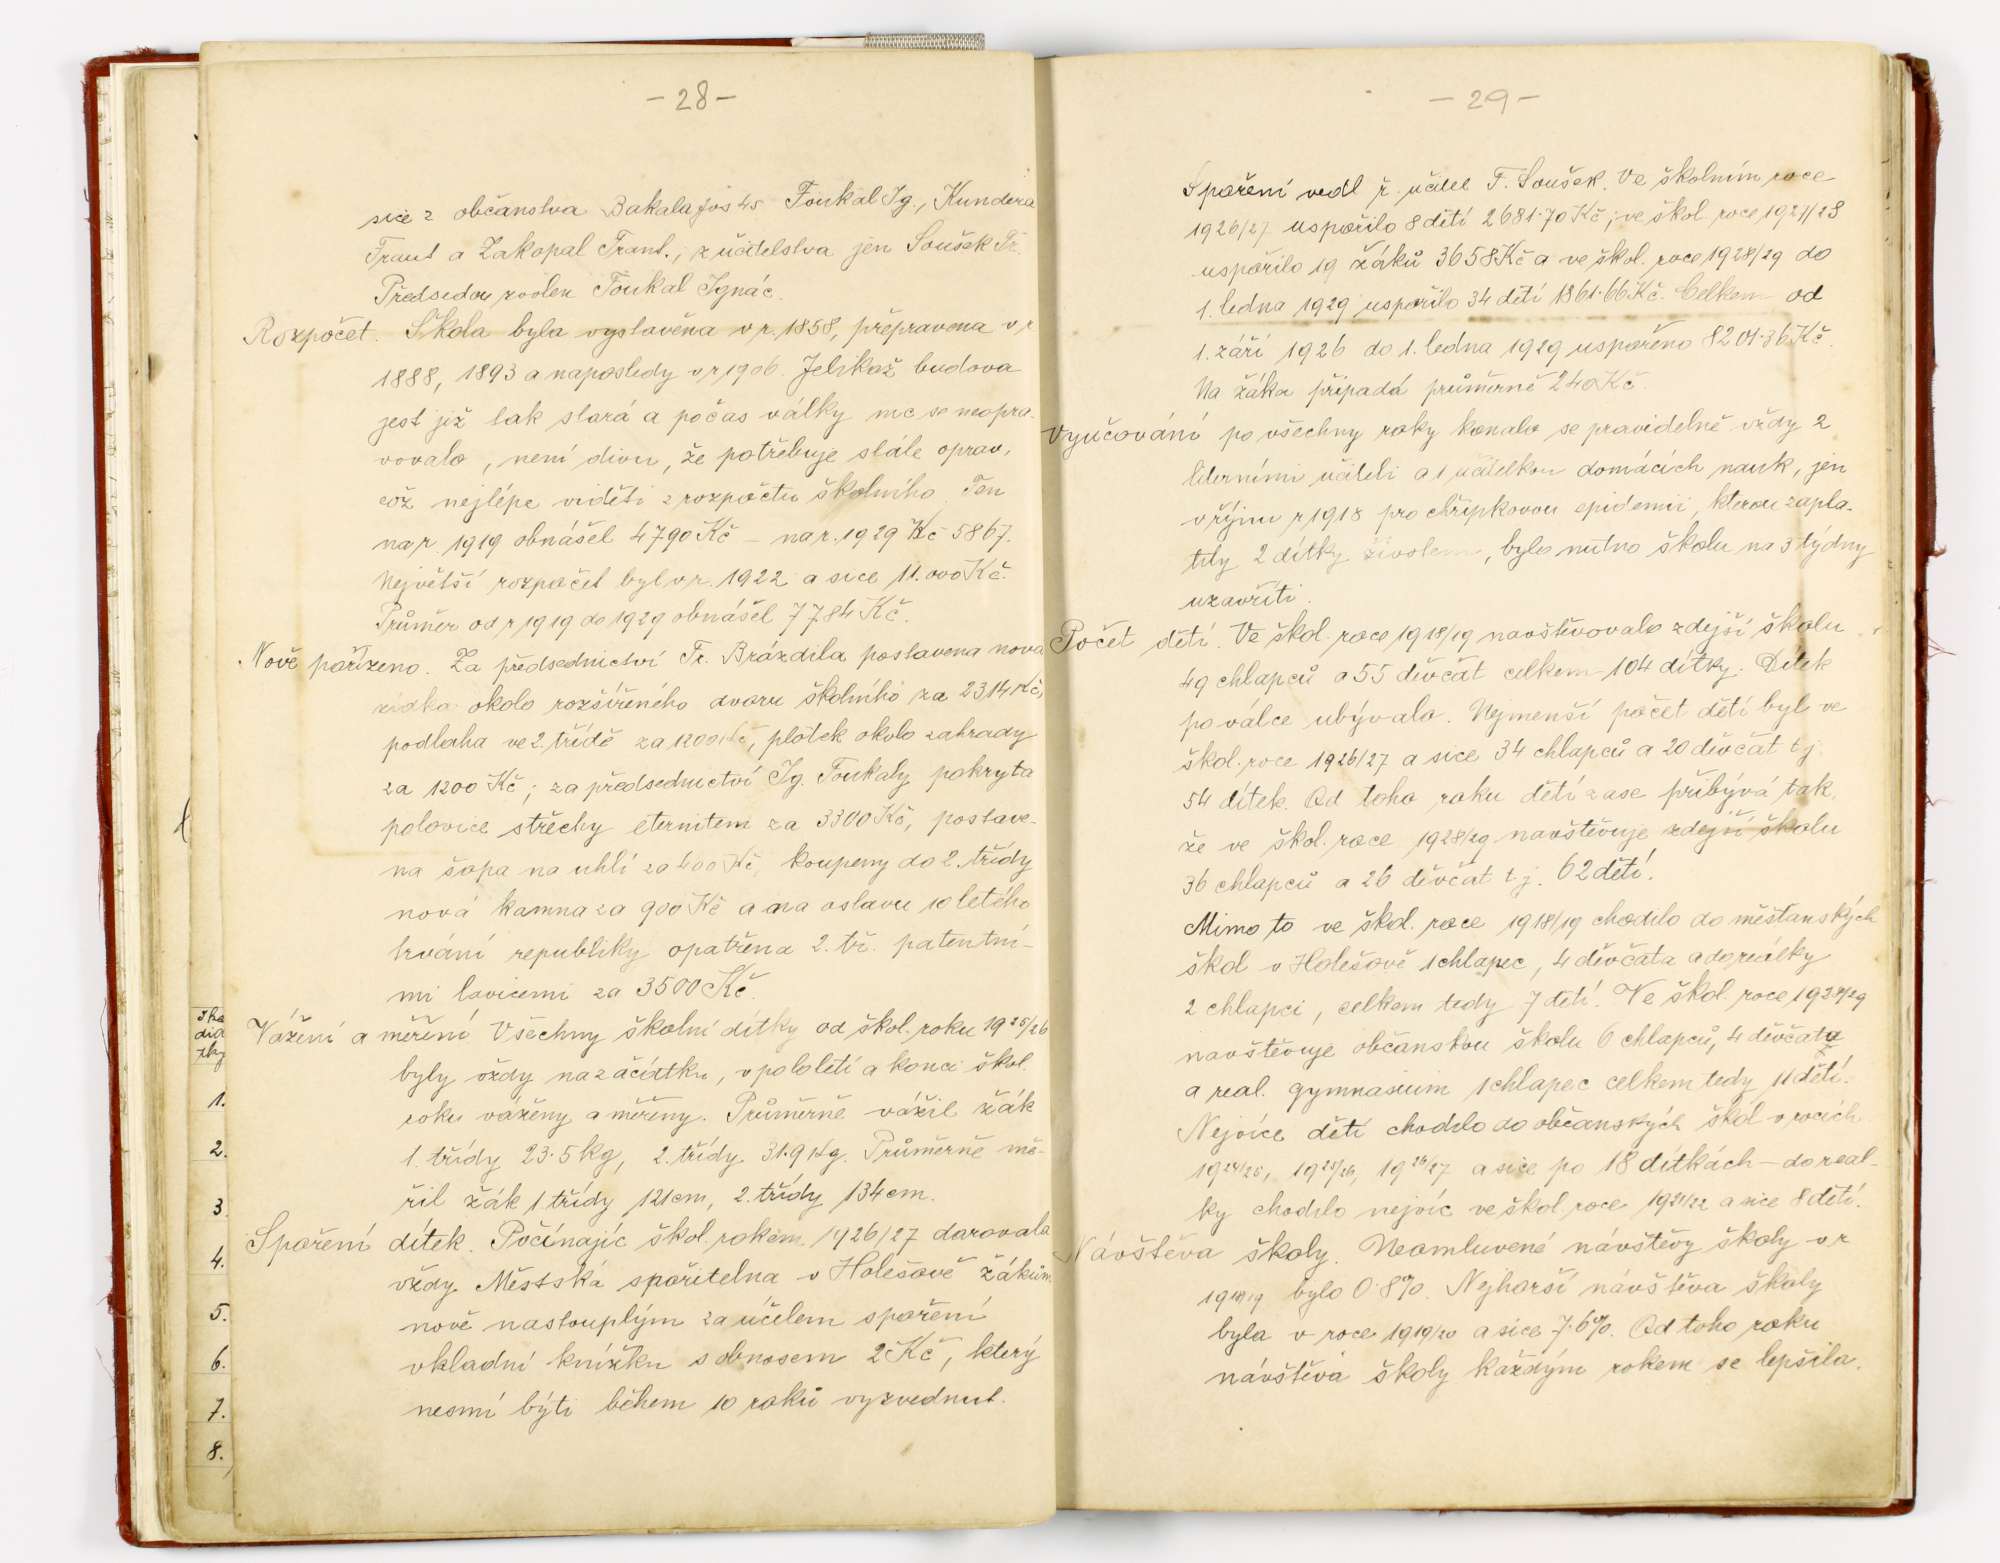 - 28 -
sice z občanstva Bakala Jos 45 Foukal Ig., Kundera
Frant a Zakopal Frant., z učitelstva jen Soušek Fr.
Předsedou zvolen Foukal Ignác.
Rozpočet. Škola byla vystavěna v r. 1858, přepravena v r
1888, 1893 a naposledy v r 1906. Jelikož budova
jest již tak stará a počas války nic se neopra-
vovalo, není divu, že potřebuje stále oprav,
což nejlépe viděti z rozpočtu školního. Ten
na r. 1919 obnášel 4790 Kč - na r. 1929 Kč 5867.
Největší rozpočet byl v r. 1922 a sice 11.000 Kč.
Průměr od r 1919 do 1929 obnášel 7784 Kč.
Nově pořízeno. Za předsednictví Fr. Brázdila postavena nová
zídka okolo rozšířeného dvoru školního za 2314 Kč,
podlaha ve 2. třídě za 1200 Kč, plótek okolo zahrady
za 1200 Kč; za předsednictví Ig. Foukaly pokryta
polovice střechy eternitem za 3300 Kč, postave-
na šopa na uhlí za 400 Kč, koupeny do 2. třídy
nová kamna za 900 Kč a na oslavu 10 letého
trvání republiky opatřena 2. tř. patentní-
mi lavicemi za 3500 Kč.
Vážení a měření Všechny školní dítky od škol. roku 1925/26
byly vždy na začátku, v pololetí a konci škol.
roku váženy a měřeny. Průměrně vážil žák
1. třídy 23.5 kg, 2. třídy 31.9 kg. Průměrně mě-
řil žák 1 třídy 121 cm, 2. třídy 134 cm.
Spoření dítek. Počínajíc škol. rokem 1926/27 darovala
vždy Městská spořitelna v Holešově žákům
nově nastouplým za účelem spoření
vkladní knížku s obnosem 2 Kč, který
nesmí býti během 10 roků vyzvednut.
1.
2.
3.
4.
5.
6.
7.
8.
- 29 -
Spoření vedl ř. učitel F. Soušek. Ve školním roce
1926/27 uspořilo 8 dětí 2681.70 Kč; ve škol. roce 1927/28
uspořilo 19 žáků 3658 Kč a ve škol. roce 1928/29 do
1. ledna 1929 uspořilo 34 dětí 1861.66 Kč. Celkem od
1. září 1926 do 1. ledna 1929 uspořeno 8201.36 Kč.
Na žáka připadá průměrně 240 Kč.
Vyučování po všechny roky konalo se pravidelně vždy 2
literními učiteli a 1 učitelkou domácích nauk, jen
v říjnu r 1918 pro chřipkovou epidemii, kterou zapla-
tily 2 dítky životem, bylo nutno školu na 3 týdny
uzavříti.
Počet dětí. Ve škol. roce 1918/19 navštěvovalo zdejší školu
49 chlapců a 55 děvčat celkem 104 dítky. Dítek
po válce ubývalo. Nejmenší počet dětí byl ve
škol. roce 1926/27 a sice 34 chlapců a 20 děvčat t j.
54 dítek. Od toho roku dětí zase přibývá tak,
že ve škol. roce 1928/29 navštěvuje zdejší školu
36 chlapců a 26 děvčat t j. 62 dětí.
Mimo to ve škol. roce 1918/19 chodilo do měšťanských
škol v Holešově 1 chlapec, 4 děvčata a do reálky
2 chlapci, celkem tedy 7 dětí. Ve škol. roce 1928/29
navštěvuje občanskou školu 6 chlapců, 4 děvčata
a real. gymnasium 1 chlapec celkem tedy 11 dětí.
Nejvíce dětí chodilo do občanských škol v rocích
1924/25, 1925/26, 1926/27 a sice po 18 dítkách - do real-
ky chodilo nejvíc ve škol. roce 1921/22 a sice 8 dětí.
Návštěva školy. Neomluvené návštěvy školy v r
1918/19 bylo 0.8%. Nejhorší návštěva školy
byla v roce 1919/20 a sice 7.6%. Od toho roku
návštěva školy každým rokem se lepšila.